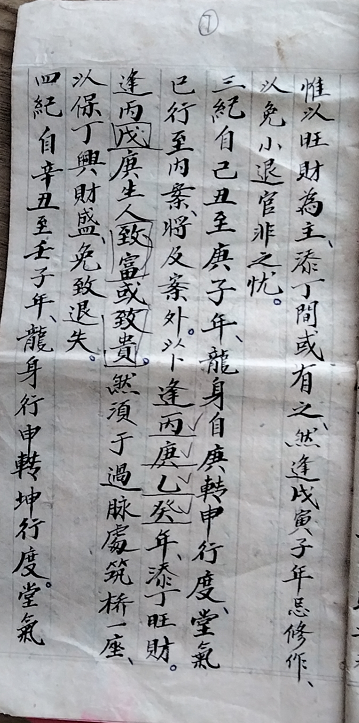 7
惟以旺財為主、添丁間或有之、然逢戊寅子年忌修作、
以免小退官非之忧。
三紀自己丑至庚子年、龍身自庚轉申行度、堂氣
已行至内案、將及案外。以卜逢丙庚乙癸年、添丁旺財。
逢丙戊庚生人致富或致貴。然須于過脉處筑桥一座、
以保丁興財盛、免致退失。
四紀自辛丑至壬子年、龍身行申轉坤行度。堂氣